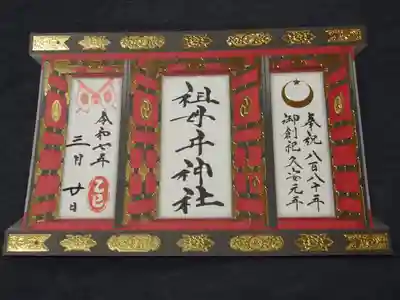 奉祝 八百八十年
御創祀久安元年
祖母井神社
令和七年
三月廿日
乙巳